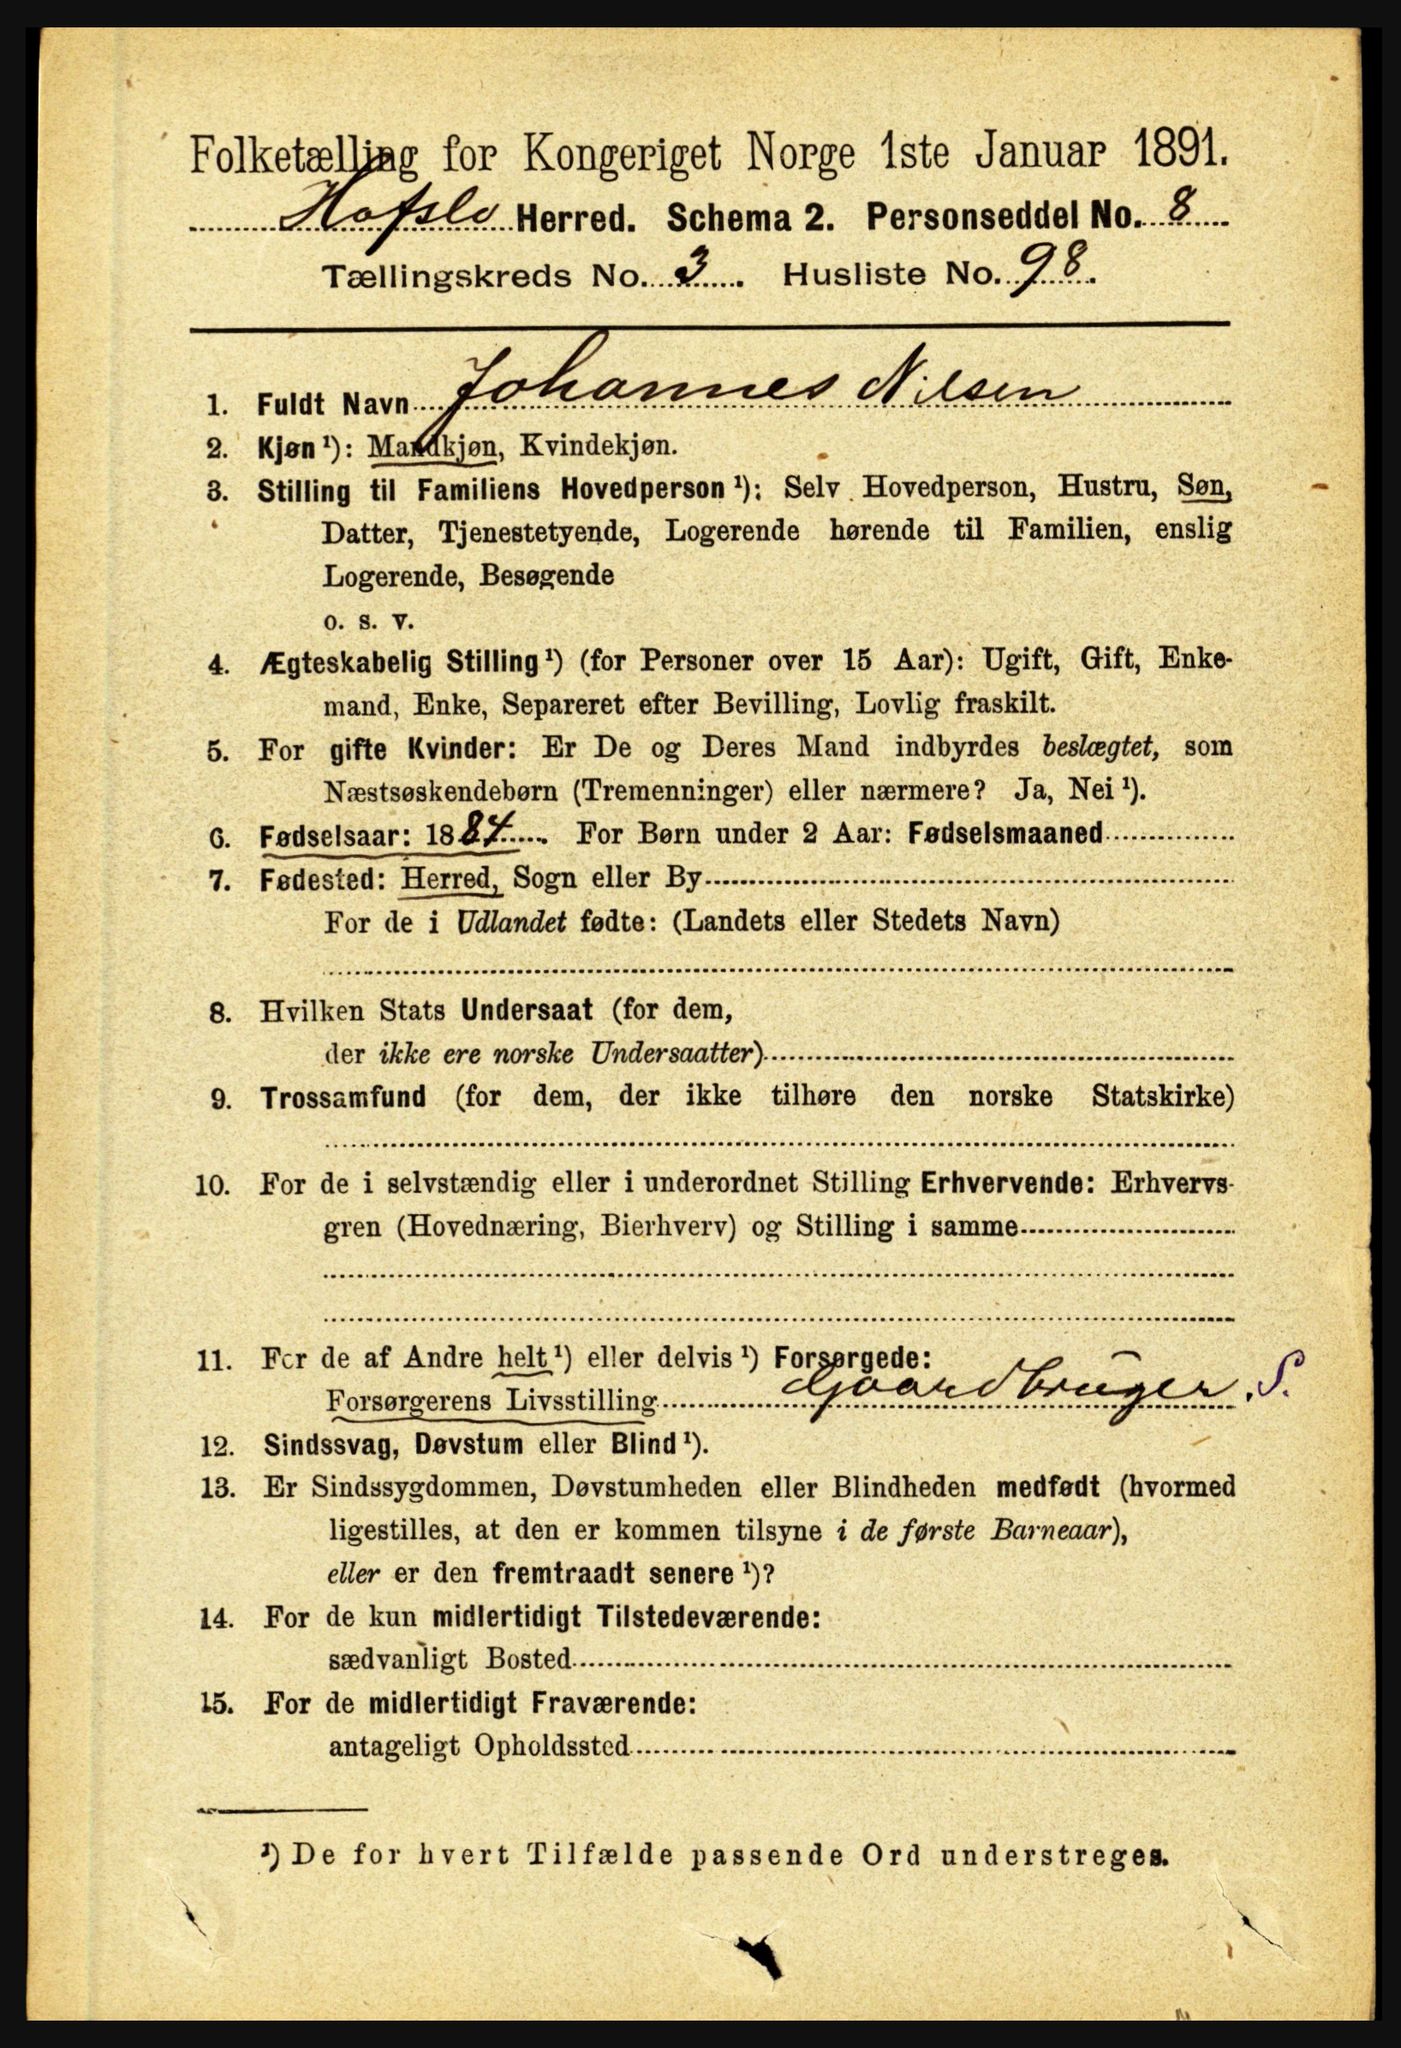 Folketælling for Kongeriget Norge 1ste Januar 1891.
Hafslo Herred. Schema 2. Personseddel No. 8
Tællingskreds No. 3. Husliste No. 98.
1. Fuldt Navn Johannes Nilsen
2. Kjøn ¹): Mandkjøn, Kvindekjøn.
3. Stilling til Familiens Hovedperson ¹): Selv Hovedperson, Hustru, Søn,
Datter, Tjenestetyende, Logerende hørende til Familien, enslig
Logerende, Besøgende
o. s. v.
4. Ægteskabelig Stilling ¹) (for Personer over 15 Aar): Ugift, Gift, Enke-
mand, Enke, Separeret efter Bevilling, Lovlig fraskilt.
5. For gifte Kvinder: Er De og Deres Mand indbyrdes beslægtet, som
Næstsøskendebørn (Tremenninger) eller nærmere? Ja, Nei ¹).
6. Fødselsaar: 1884. For Børn under 2 Aar: Fødselsmaaned
7. Fødested: Herred, Sogn eller By
For de i Udlandet fødte: (Landets eller Stedets Navn)
8. Hvilken Stats Undersaat (for dem,
der ikke ere norske Undersaatter)
9. Trossamfund (for dem, der ikke tilhøre den norske Statskirke)
10. For de i selvstændig eller i underordnet Stilling Erhvervende: Erhvervs-
gren (Hovednæring, Bierhverv) og Stilling i samme
11. For de af Andre helt ¹) eller delvis ¹) Forsørgede:
Forsørgerens Livsstilling Gaardbruger. S.
12. Sindssvag, Døvstum eller Blind ¹).
13. Er Sindssygdommen, Døvstumheden eller Blindheden medfødt (hvormed
ligestilles, at den er kommen tilsyne i de første Barneaar),
eller er den fremtraadt senere ¹)?
14. For de kun midlertidigt Tilstedeværende:
sædvanligt Bosted
15. For de midlertidigt Fraværende:
antageligt Opholdssted
¹) De for hvert Tilfælde passende Ord understreges.